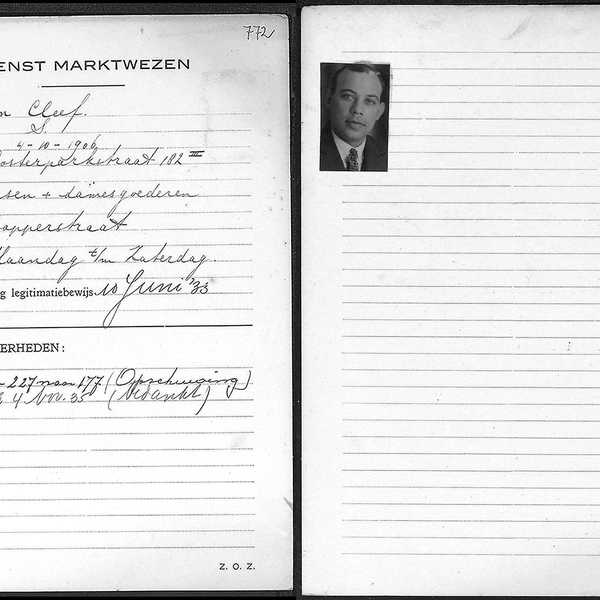 772
ENST MARKTWEZEN
n Cleef.
S.
4-10-1906
osterparkstraat 182 III
sen + damesgoederen
opperstraat
Maandag t/m Zaterdag.
g legitimatiebewijs 10 Juni '35
ERHEDEN:
- 227 naar 177 (Opschuiving)
4 Nov. 35 (Bedankt)
Z. O. Z.